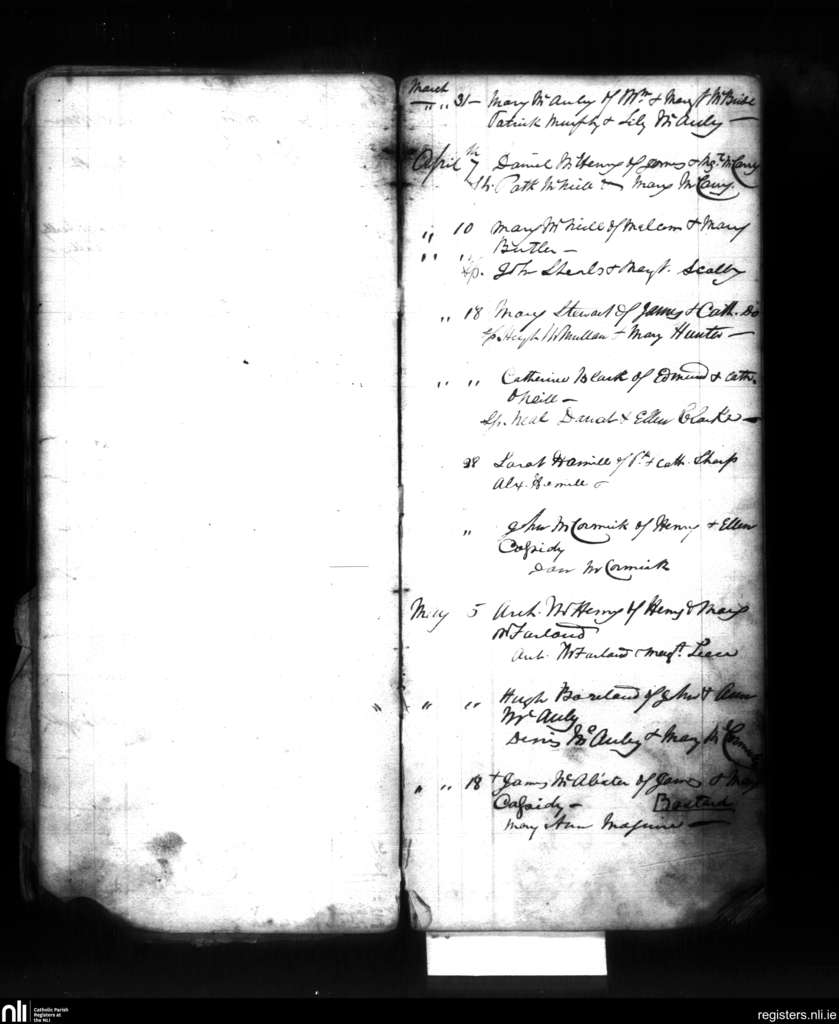 March
" " 31 - Mary McAuley of Wm & Margt McBride
Patrick Murphy & Lily McAuley -
April 7th Daniel McHenry of James & Mgt McCarry
Sp. Patk McNeill & Mary McCarry.
" 10 Mary McNeill of Malcom & Mary
" " Butler -
Sp. John Sheals & Margt. Scally
" 18 Mary Stewart of James & Cath. Do
Sp. Hugh McMullan & Mary Hunter -
" " Catherine Black of Edmund & Cath.
O'Neill -
Sp. Neal & Ellen Clarke -
28 Sarah Hamill of Pt & Cath. Sharp
Alex. Hamill
" John McCormick of Henry & Ellen
Cassidy
Dan McCormick
May 5 Arch. McHenry of Henry & Mary
McFarland
Arch. McFarland & Margt.
" " " Hugh Boreland of John & Ann
McAuly
Denis McAuley & Mary
" " 18 + James McAlister of James & Mary
Cassidy - Bastard
Mary Ann Maguire -
nli
Catholic Parish
Registers at
the NLI
registers.nli.ie